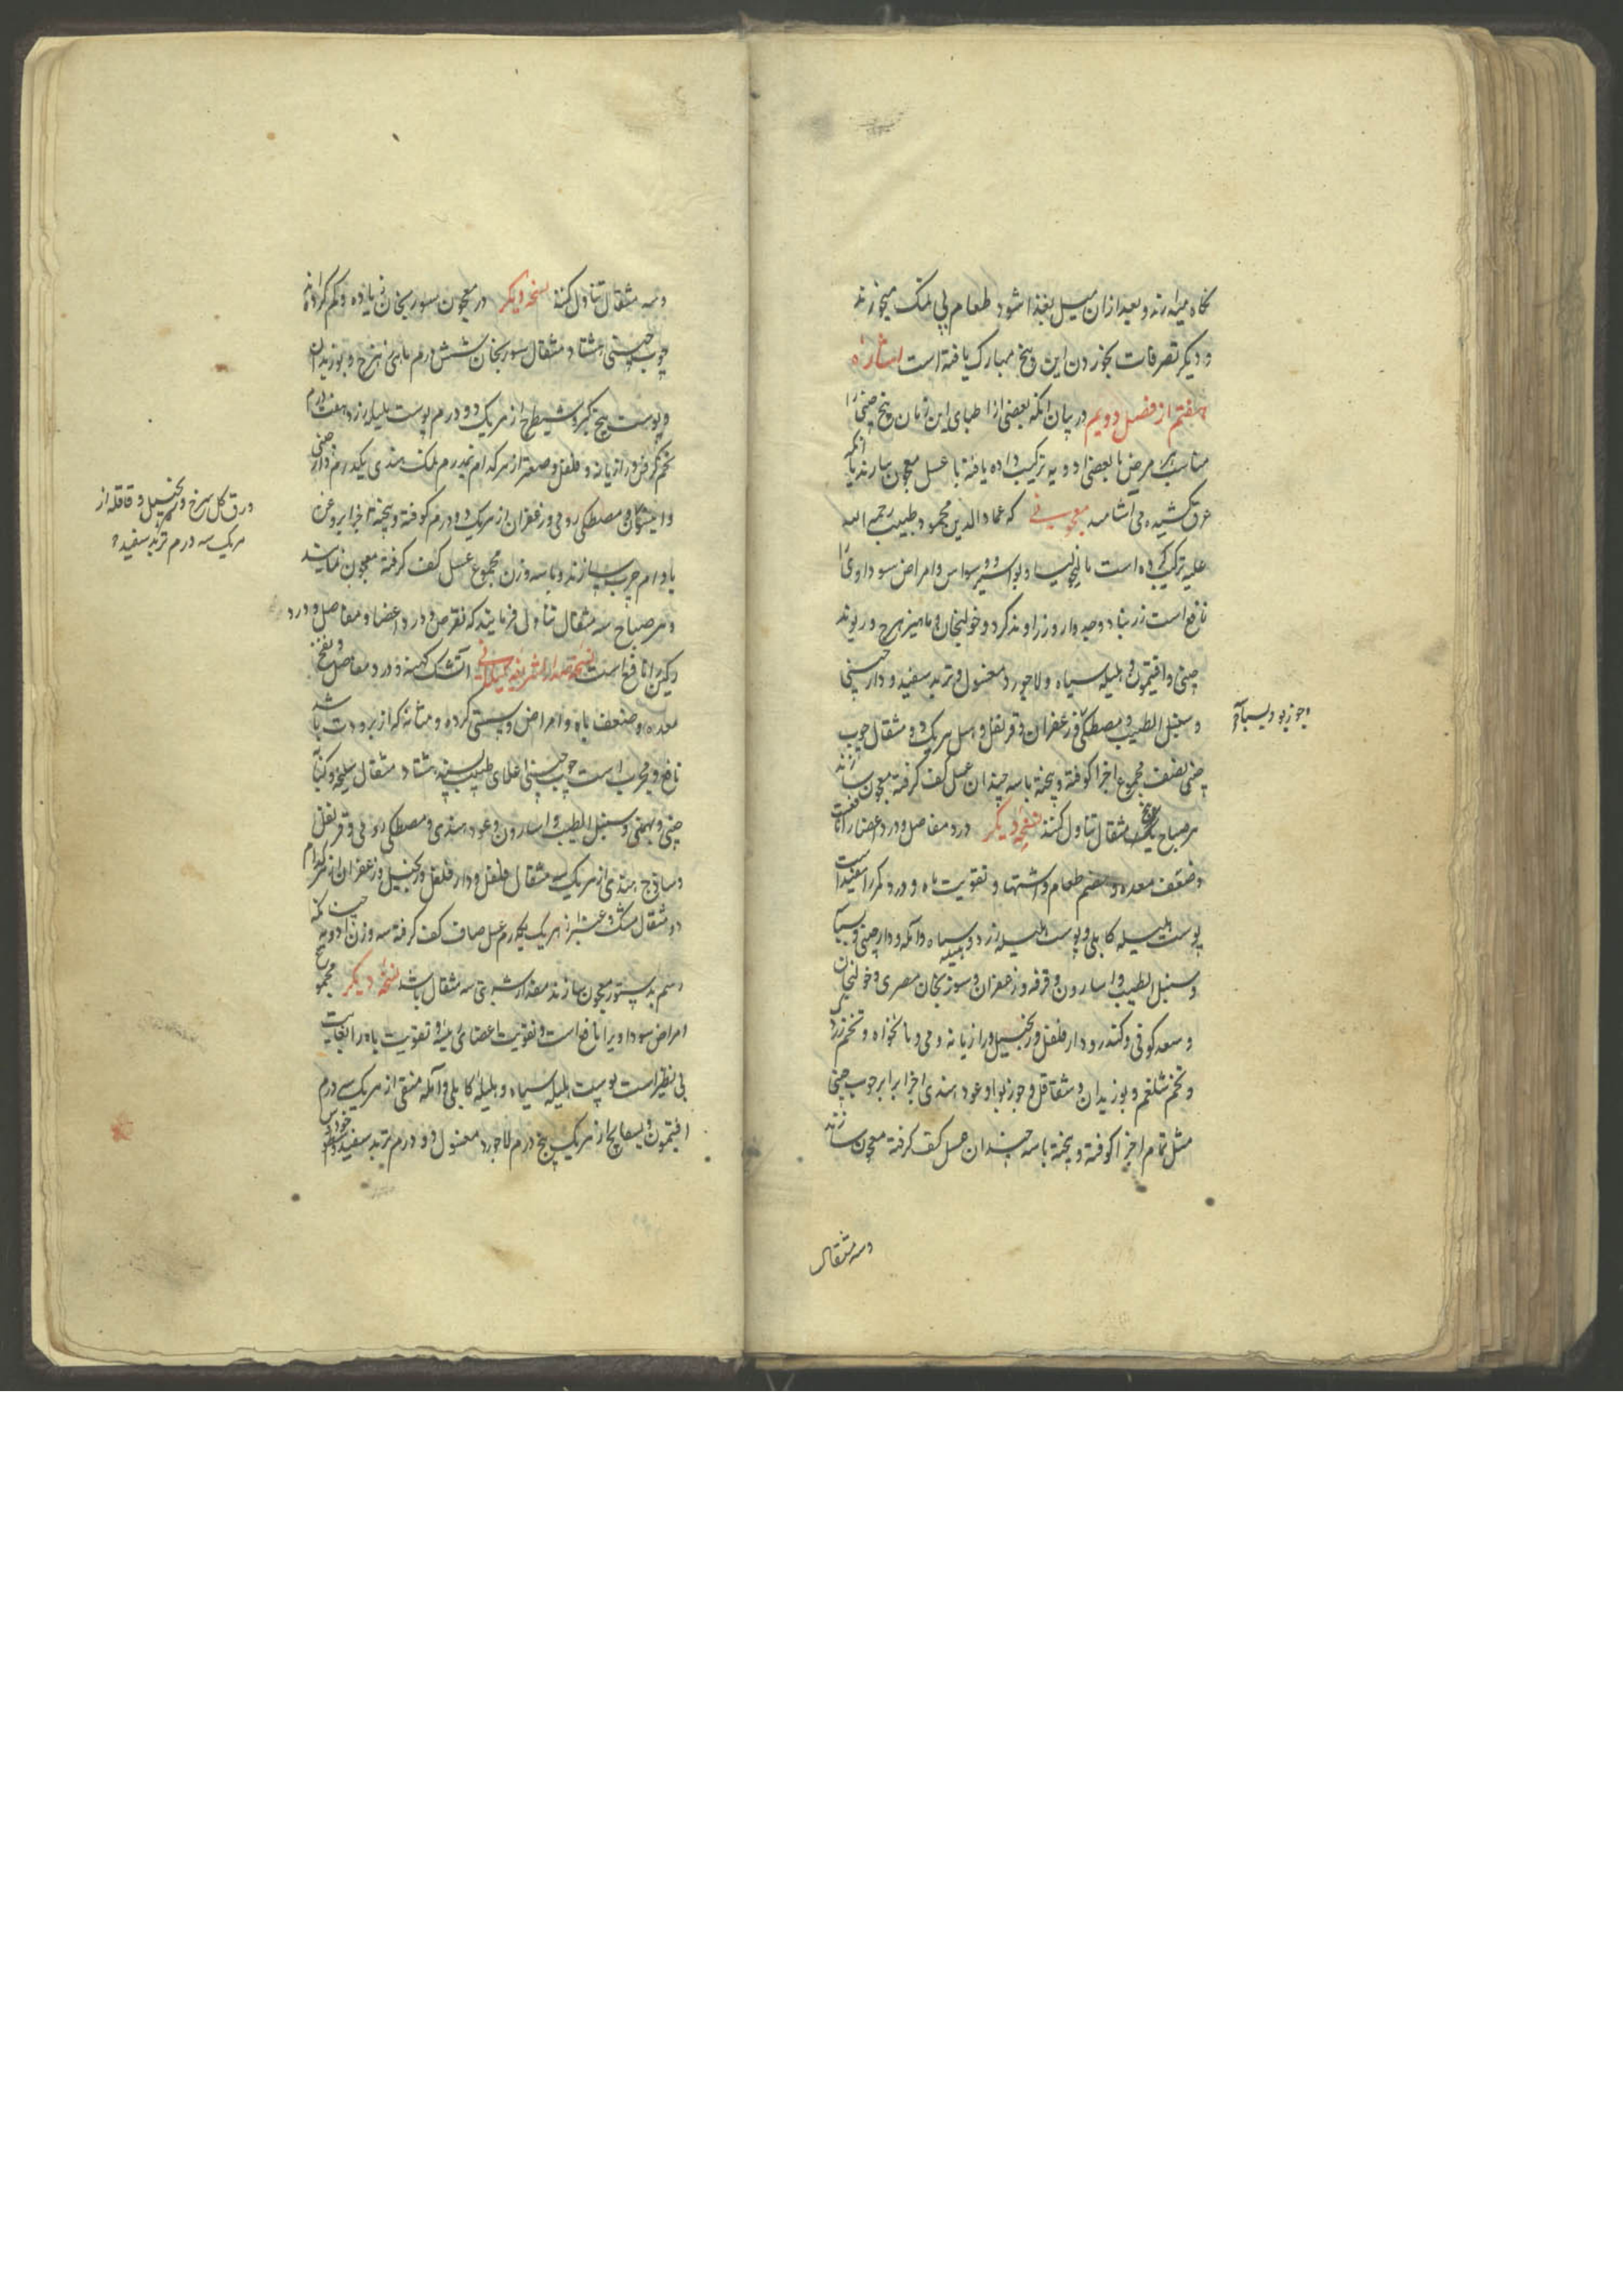 نگاه میدارند و بعد از ان میل بغذا شود طعام بی نمک میخورند
و دیگر تصرفات بخوردن این بیخ مبارک یافته است اشاره
هفتم از فصل دویم در بیان انکه بعضی از اطبای این زمان بیخ چینی را
مناسب هر مرض با بعضی ادویه ترکیب داده یافته با عسل معجون سازند یا انکه
عرق کشیده می آشامند معجونی که عماد الدین محمود طبیب رحمه الله
علیه ترکیب کرده است مالیخولیا و بواسیر و وسواس و امراض سوداوی را
نافع است زرنباد و جدوار و زراوند کرد و خولنجان و ماهیزهرج و ریوند
چینی و افتیمون و هلیله سیاه و لاجورد مغسول و تربد سفید و دارچینی
و سنبل الطیب و مصطکی و زعفران و قرنفل و هیل هر یک دو مثقال چوب
وجوزبو و بسباسه
چینی نصف مجموع اجزا کوفته و پخته با سه چندان عسل کف کرفته معجون سازند
هر صباح یک مثقال تناول کنند نسخه دیگر درد مفاصل و درد اعضا را نافعست
و ضعف معده و هضم طعام و اشتها و تقویت باه و درد کمر را مفید است
پوست هلیله کابلی و پوست هلیله زرد و هلیله سیاه و آمله و دارچینی و بسباسه
و سنبل الطیب و اسارون و قرفه و زعفران و سورنجان مصری و خولنجان
و سعد کوفی و کندر و دارفلفل و زنجبیل و رازیانه رومی و نانخواه و تخم زردک
و تخم شلغم و بوزیدان و شقاقل و جوزبوا و عود هندی اجزا برابر چوب چینی
مثل تمام اجزا کوفته و پخته با سه چندان عسل کف کرفته معجون سازند
و سه مثقال
و سه مثقال تناول کنند نسخه دیگر در معجون سورنجان زیاده و کم کرده اند
چوب چینی هشتاد مثقال سورنجان شش درم ماهی زهرج و بوزیدان
و پوست بیخ کبر و شیطرج از هر یک دو درم پوست هلیله زرد هفت درم
تخم کرفس و رازیانه و فلفل و صعتر از هر کدام نیمدرم نمک هندی یکدرم دارچینی
ورق کل سرخ و زنجبیل و قاقله از
هر یک سه درم تربد سفید
و مصطکی رومی و زعفران از هر یک دو درم کوفته و پخته اجزا بروغن
بادام چرب سازند و با سه وزن مجموع عسل کف کرفته معجون نمایند
و هر صباح سه مثقال تناول فرمایند که نقرس و درد اعضا و مفاصل و درد
را نافع است نسخه آتشک کهنه و درد مفاصل و نفخ
معده و ضعف باه و امراض و سستی کرده و مثانه که از برودت باشد
نافع و مجرب است چوب چینی اعلای هشتاد مثقال سلیخه و کبابه
چینی و بهمنی و سنبل الطیب و اسارون و عود هندی و مصطکی رومی و قرنفل
و ساذج هندی از هر یک سه مثقال فلفل و دارفلفل و زنجبیل و زعفران از هر کدام
دو مثقال مشک و عنبر از هر یک یکدرم عسل صاف کف کرفته سه وزن ادویه چنانکه
رسم بدستور معجون سازند مقدار شربتی سه مثقال باشد نسخه دیگر مجموع
امراض سوداویرا نافع است و تقویت اعضای و تقویت باه را بغایت
بی نظیر است پوست هلیله سیاه و هلیله کابلی و آمله منقی از هر یک سی درم
افتیمون و بسفایج از هر یک پنج درم لاجورد مغسول دو درم تربد سفید